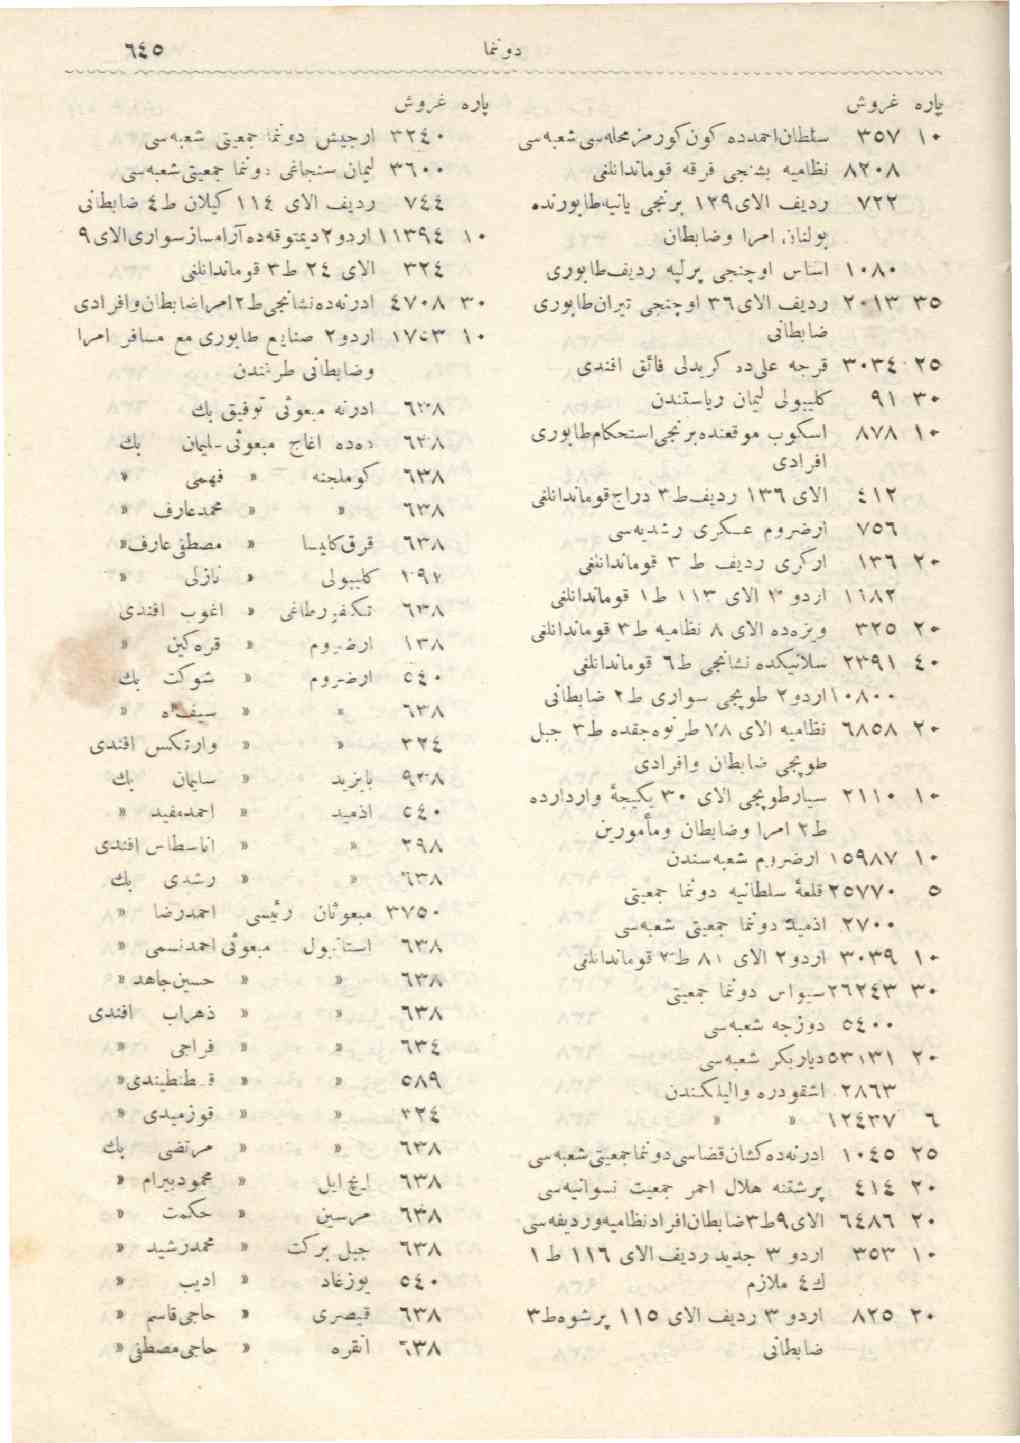 دونما
٦٤٥
پاره غروش
١٠ ٣٥٧ سلطان احمدده كون كورمز محله سی شعبه سی
٨٢٠٨ نظامیه بشنجی فرقه قوماندانلغی
٧٢٢ ردیف الای ١٢٩ برنجی یانیه طابورنده
بولنان امرا وضابطان
١٠٨٠ اساس اوچنجی پرلپه ردیف طابوری
٣٥ ٢٠١٣ ردیف الای ٣٦ اوچنجی تیران طابوری
ضابطانی
٢٥ ٣٠٣٤ قرجه علی ده كریدلی فائق افندی
٣٠ ٩١ كلیبولی لیمان ریاستندن
١٠ ٨٧٨ اسكوب موقعنده برنجی استحكام طابوری
افرادی
٤١٢ الای ١٣٦ ردیف ط ٣ دراج قوماندانلغی
٧٥٦ ارضروم عسكری رشدیه سی
٢٠ ١٣٦ اركری ردیف ط ٣ قوماندانلغی
١٦٨٢ اردو ٣ الای ١١٣ ط ١ قوماندانلغی
٢٠ ٣٢٥ ویزه ده الای ٨ نظامیه ط ٣ قوماندانلغی
٤٠ ٢٣٩١ سلانیكده نشانجی ط ٦ قوماندانلغی
١٠٨٠٠ اردو ٢ طوپجی سواری ط ٢ ضابطانی
٢٠ ٦٨٥٨ نظامیه الای ٧٨ طرنوه جقده ط ٣ جبل
طوپجی ضابطان وافرادی
١٠ ٢١١٠ سیار طوپجی الای ٣٠ یكیجۀ واردارده
ط ٢ امرا وضابطان ومأمورین
١٠ ١٥٩٨٧ ارضروم شعبه سندن
٥ ٢٥٧٧٠ قلعۀ سلطانیه دونما جمعیتی
٢٧٠٠ ازمید دونما جمعیتی شعبه سی
١٠ ٣٠٣٩ اردو ٢ الای ٨١ ط ٣ قوماندانلغی
٣٠ ٢٦٢٤٣ سیواس دونما جمعیتی
٥٤٠٠ دوزجه شعبه سی
٢٠ ٥٣١٣١ دیاربكر شعبه سی
٢٨٦٣ اشقودره والیلكندن
٦ ١٢٤٣٧ » »
٢٥ ١٠٤٥ ادرنه ده كشان قضاسی دونما جمعیتی شعبه سی
٢٠ ٤١٤ پرشتنه هلال احمر جمعیت نسوانیه سی
٢٠ ٦٤٨٦ الای ٩ ط ٣ ضابطان افراد نظامیه وردیفه سی
١٠ ٣٥٣ اردو ٣ جدید ردیف الای ١١٦ ط ١
ك ٤ ملازم
٢٠ ٨٢٥ اردو ٣ ردیف الای ١١٥ پرشوه ط ٣
ضابطانی
پاره غروش
٣٢٤٠ ارجیش دونما جمعیتی شعبه سی
٣٦٠٠ لیمان سنجاغی دونما جمعیتی شعبه سی
٧٤٤ ردیف الای ١١٤ كیلان ط ٤ ضابطانی
١٠ ١١٣٩٤ اردو ٢ دیمتوقه ده آرامساز سواری الای ٩
٣٢٤ الای ٢٤ ط ٣ قوماندانلغی
٣٠ ٤٧٠٨ ادرنه ده نشانجی ط ٢ امرا ضابطان وافرادی
١٠ ١٧٥٣ اردو ٢ صنایع طابوری مع مسافر امرا
وضابطانی طرفندن
٦٣٨ ادرنه مبعوثی توفیق بك
٦٣٨ دده اغاج مبعوثی سلیمان بك
٦٣٨ كوملجنه » فهمی »
٦٣٨ » » محمد عارف »
٦٣٨ قرق كلیسا » مصطفی عارف »
٢٩٢ كلیبولی » نازلی »
٦٣٨ تكفورطاغی » اغوب افندی
١٣٨ ارضروم » قره كین »
٥٤٠ ارضروم » شوكت بك
٦٣٨ » » سیف اه »
٣٢٤ » » وارتكس افندی
٩٣٨ بایزید » سلیمان بك
٥٤٠ ازمید » احمد مفید »
٢٩٨ » » اناسطاس افندی
٦٣٨ » » رشدی بك
٣٧٥٠ مبعوثان رئیسی احمدرضا »
٦٣٨ استانبول مبعوثی احمدنسمی »
٦٣٨ » » حسین جاهد »
٦٣٨ » » ذهراب افندی
٦٣٤ » » فراجی »
٥٨٩ » » قسطنطیندی »
٣٢٤ » » قوزمیدی »
٦٣٨ » » مرتضی بك
٦٣٨ ایچ ایل » محمود بیرام »
٦٣٨ مرسین » حكمت »
٦٣٨ جبل بركت » محمدرشید »
٥٤٠ یوزغاد » ادیب »
٦٣٨ قیصری » حاجی قاسم »
٦٣٨ انقره » حاجی مصطفی »